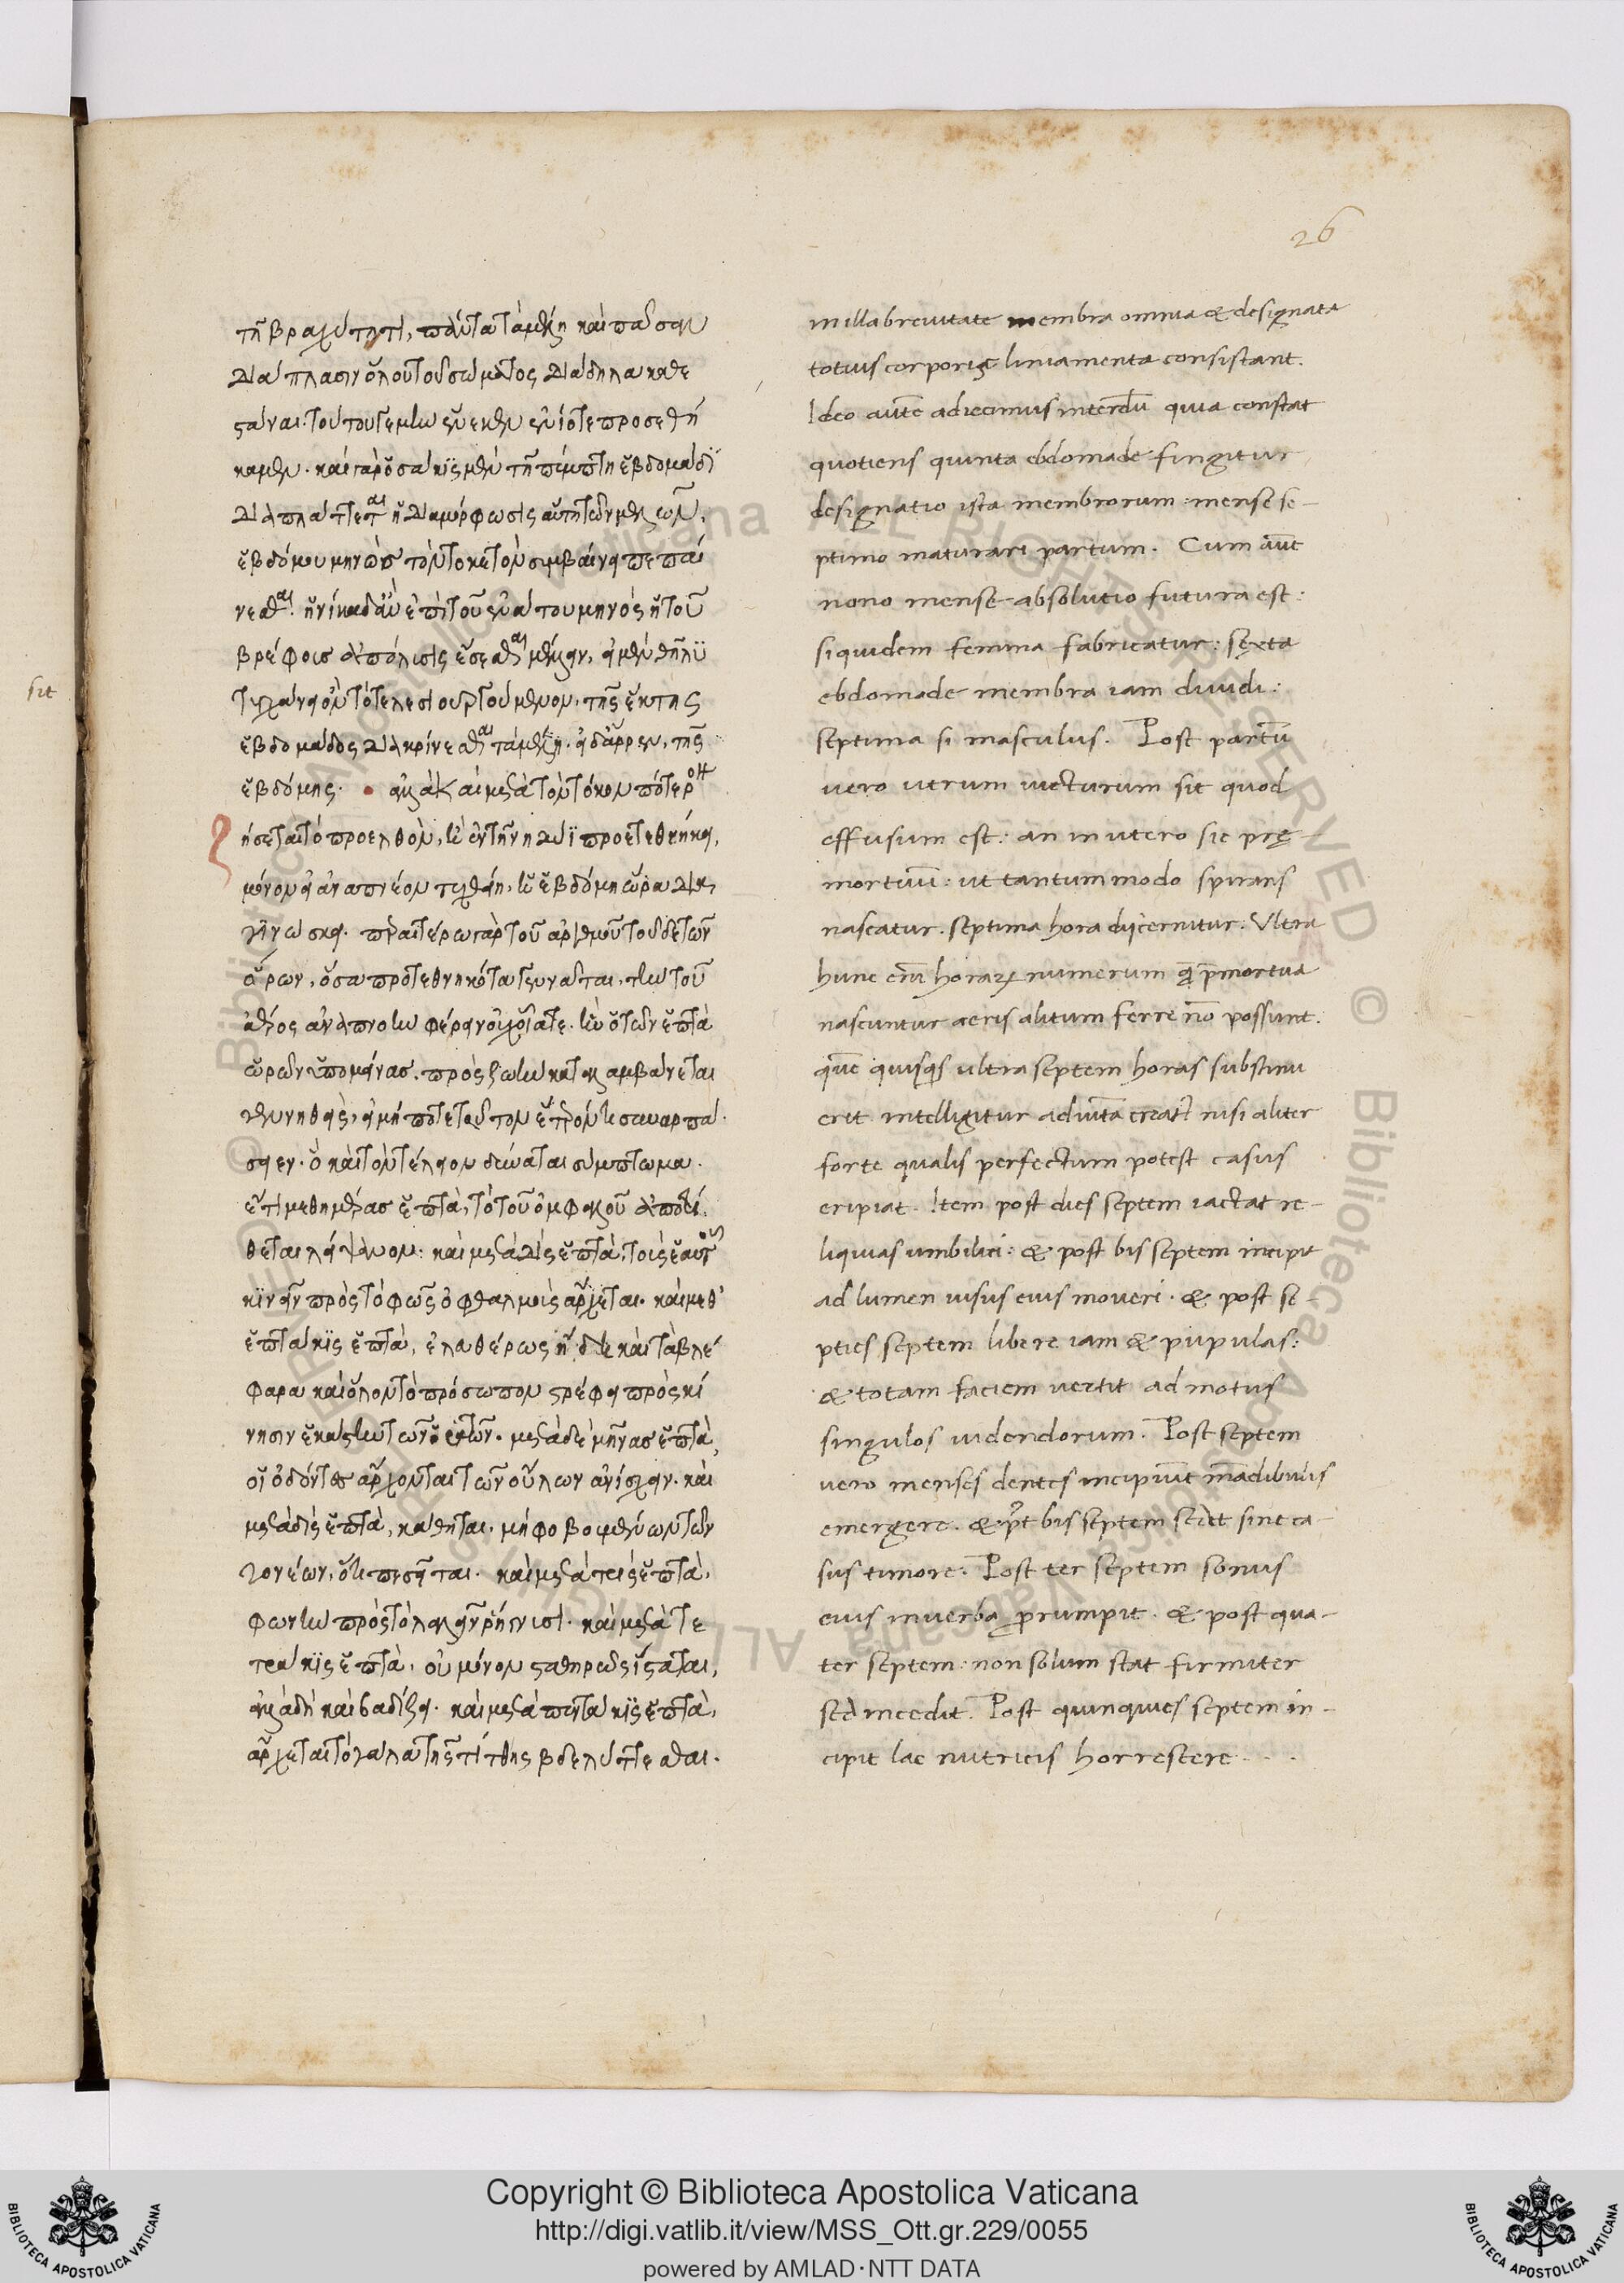 26
sit
τῇ βραχύτητι, πάντα τὰ μέλη καὶ πᾶσαν
διάπλασιν ὅλου τοῦ σώματος διάδηλα καθε
στάναι. τούτου γε μὴν ἕνεκεν ἐνίοτε προσεθή
καμεν. καὶ γὰρ ὁσάκις μὲν τῇ πέμπτῃ ἑβδομάδι
διαπλάττεται ἡ διαμόρφωσις αὕτη τῶν μελῶν,
ἑβδόμου μηνὸς τὸν τοκετὸν συμβαίνει πεπαί
νεσθαι. ἡνίκα δ' ἂν ἐπὶ τοῦ ἐνάτου μηνὸς ἡ τοῦ
βρέφους ἀπόλυσις ἔσεσθαι μέλλῃ, εἰ μὲν θῆλυ
τυγχάνει ὂν τὸ τελεσιουργούμενον, τῆς ἕκτης
ἑβδομάδος διακρίνεσθαι τὰ μέλη. εἰ δ' ἄρρεν, τῆς
ἑβδόμης. ἀλλὰ καὶ μετὰ τὸν τόκον πότερον
ήσεται τὸ προελθὸν, ἢ ἐν τῇ νηδύϊ προετεθνήκει,
μόνον εἰ ἀναπνέον τυχθείη, ἡ ἑβδόμη ὥρα δια
γινώσκει. περαιτέρω γὰρ τοῦ ἀριθμοῦ τοῦδε τῶν
ὡρῶν, ὅσα προτεθνηκότα γεννᾶται, τὴν τοῦ
ἀέρος ἀναπνοὴν φέρειν οὐχ οἷά τε.
ὡρῶν ὑπομείνας, πρὸς ζωὴν καταλαμβάνεται
γεννηθεὶς, εἰ μή ποτε τοῦτον ἕτερόν τι συναρπά
σειεν. ὃ καὶ τὸν τέλειον δύναται σύμπτωμα.
ἔτι μεθ' ἡμέρας ἑπτὰ, τὸ τοῦ ὀμφαλοῦ ἀποτί
θεται λείψανον. καὶ μετὰ δὶς ἑπτὰ, τοὺς ἑαυτοῦ
κινεῖν πρὸς τὸ φῶς ὀφθαλμοὺς ἄρχεται. καὶ μεθ'
ἑπτάκις ἑπτὰ, ἐλευθέρως ἤδη καὶ τὰ βλέ
φαρα καὶ ὅλον τὸ πρόσωπον στρέφει πρὸς κί
νησιν ἑκάστην τῶν ὁρατῶν. μετὰ δὲ μῆνας ἑπτὰ,
οἱ ὀδόντες ἄρχονται τῶν οὔλων ἀνίσχειν. καὶ
μετὰ δὶς ἑπτὰ, κάθηται, μὴ φοβουμένων τῶν
γονέων, ὅτι πεσεῖται. καὶ μετὰ τρὶς ἑπτὰ,
φωνὴν πρὸς τὸ λαλεῖν ῥήγνυσι. καὶ μετὰ τε
τράκις ἑπτὰ, οὐ μόνον σταθηρῶς ἵσταται,
ἀλλὰ δὴ καὶ βαδίζει. καὶ μετὰ πεντάκις ἑπτὰ,
ἄρχεται τὸ γάλα τῆς τίτθης βδελύττεσθαι.
in illa brevitate membra omnia & designata
totius corporis liniamenta consistant.
Ideo autē adiecimus interdū quia constat
quotiens quinta ebdomade fingitur
designatio ista membrorum: mense se-
ptimo maturari partum. Cum aut̄
nono mense absolutio futura est:
siquidem femina fabricatur: sexta
ebdomade membra iam dividi:
septima si masculus. Post partū
vero utrum victurum sit quod
effusum est: an in utero sic prę-
mortuū: ut tantummodo spirans
nascatur. septima hora discernitur. Ultra
hunc eni᷑ horaꝝ numerum q̄ p̄mortua
nascuntur aeris alitum ferre nō possunt.
quē quisq̇s ultra septem horas substinu
erit intelligitur ad vitā creatꝰ nisi aliter
forte qualis perfectum potest casus
eripiat. Item post dies septem iactat re-
liquias umbilici: & post bis septem incipit
ad lumen visus eius moveri. & post se-
pties septem libere iam & pupulas:
& totam faciem vertit ad motus
singulos videndorum. Post septem
vero menses dentes incipiūt mādibulis
emergere. & p̄t bis septem sedet sine ca-
sus timore. Post ter septem sonus
eius in verba ꝓrumpit. & post qua-
ter septem: non solum stat firmiter
sed incedit. Post quinquies septem in-
cipit lac nutricis horrescere . . .
Copyright © Biblioteca Apostolica Vaticana
http://digi.vatlib.it/view/MSS_Ott.gr.229/0055
powered by AMLAD·NTT DATA
BIBLIOTECA APOSTOLICA VATICANA
BIBLIOTECA APOSTOLICA VATICANA